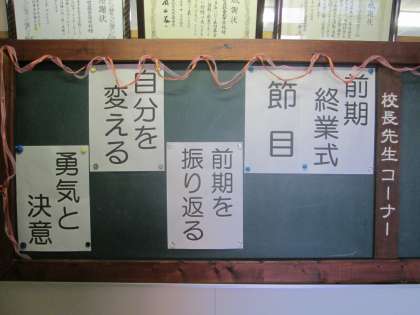 校長先生コーナー
前期
終業式
節目
前期を
振り返る
自分を
変える
勇気と
決意